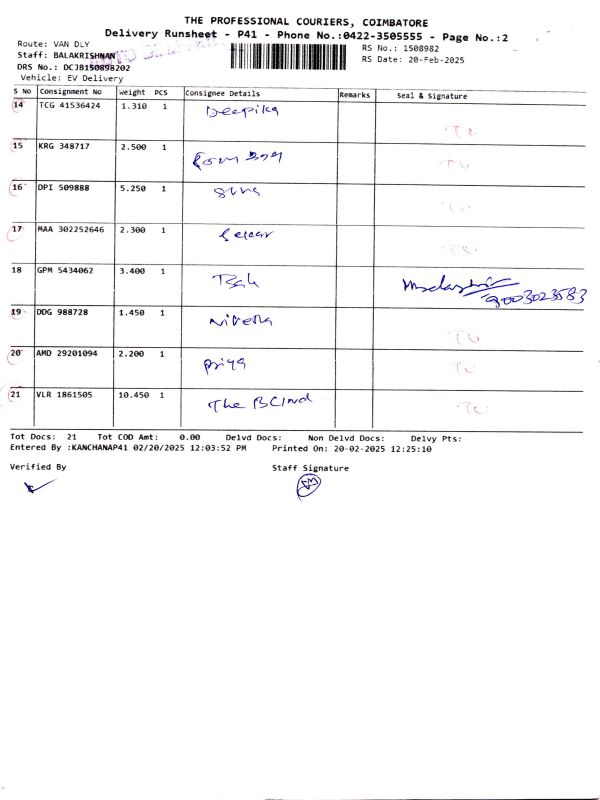 THE PROFESSIONAL COURIERS, COIMBATORE
Delivery Runsheet - P41 - Phone No.:0422-3505555 - Page No.:2
Route: VAN DLY
RS No.: 1508982
Staff: BALAKRISHNAN
RS Date: 20-Feb-2025
DRS No.: DCJB150898202
Vehicle: EV Delivery
S No Consignment No Weight PCS Consignee Details Remarks Seal & Signature
14 TCG 41536424 1.310 1 Deepika
TU
15 KRG 348717 2.500 1
TU
16 DPI 509888 5.250 1
TU
17 MAA 302252646 2.300 1
TU
18 GPM 5434062 3.400 1
9003023583
19 DDG 988728 1.450 1 Nivetha
TU
20 AMD 29201094 2.200 1 Priya
TU
21 VLR 1861505 10.450 1 The
TU
Tot Docs: 21 Tot COD Amt: 0.00 Delvd Docs: Non Delvd Docs: Delvy Pts:
Entered By :KANCHANAP41 02/20/2025 12:03:52 PM Printed On: 20-02-2025 12:25:10
Verified By Staff Signature